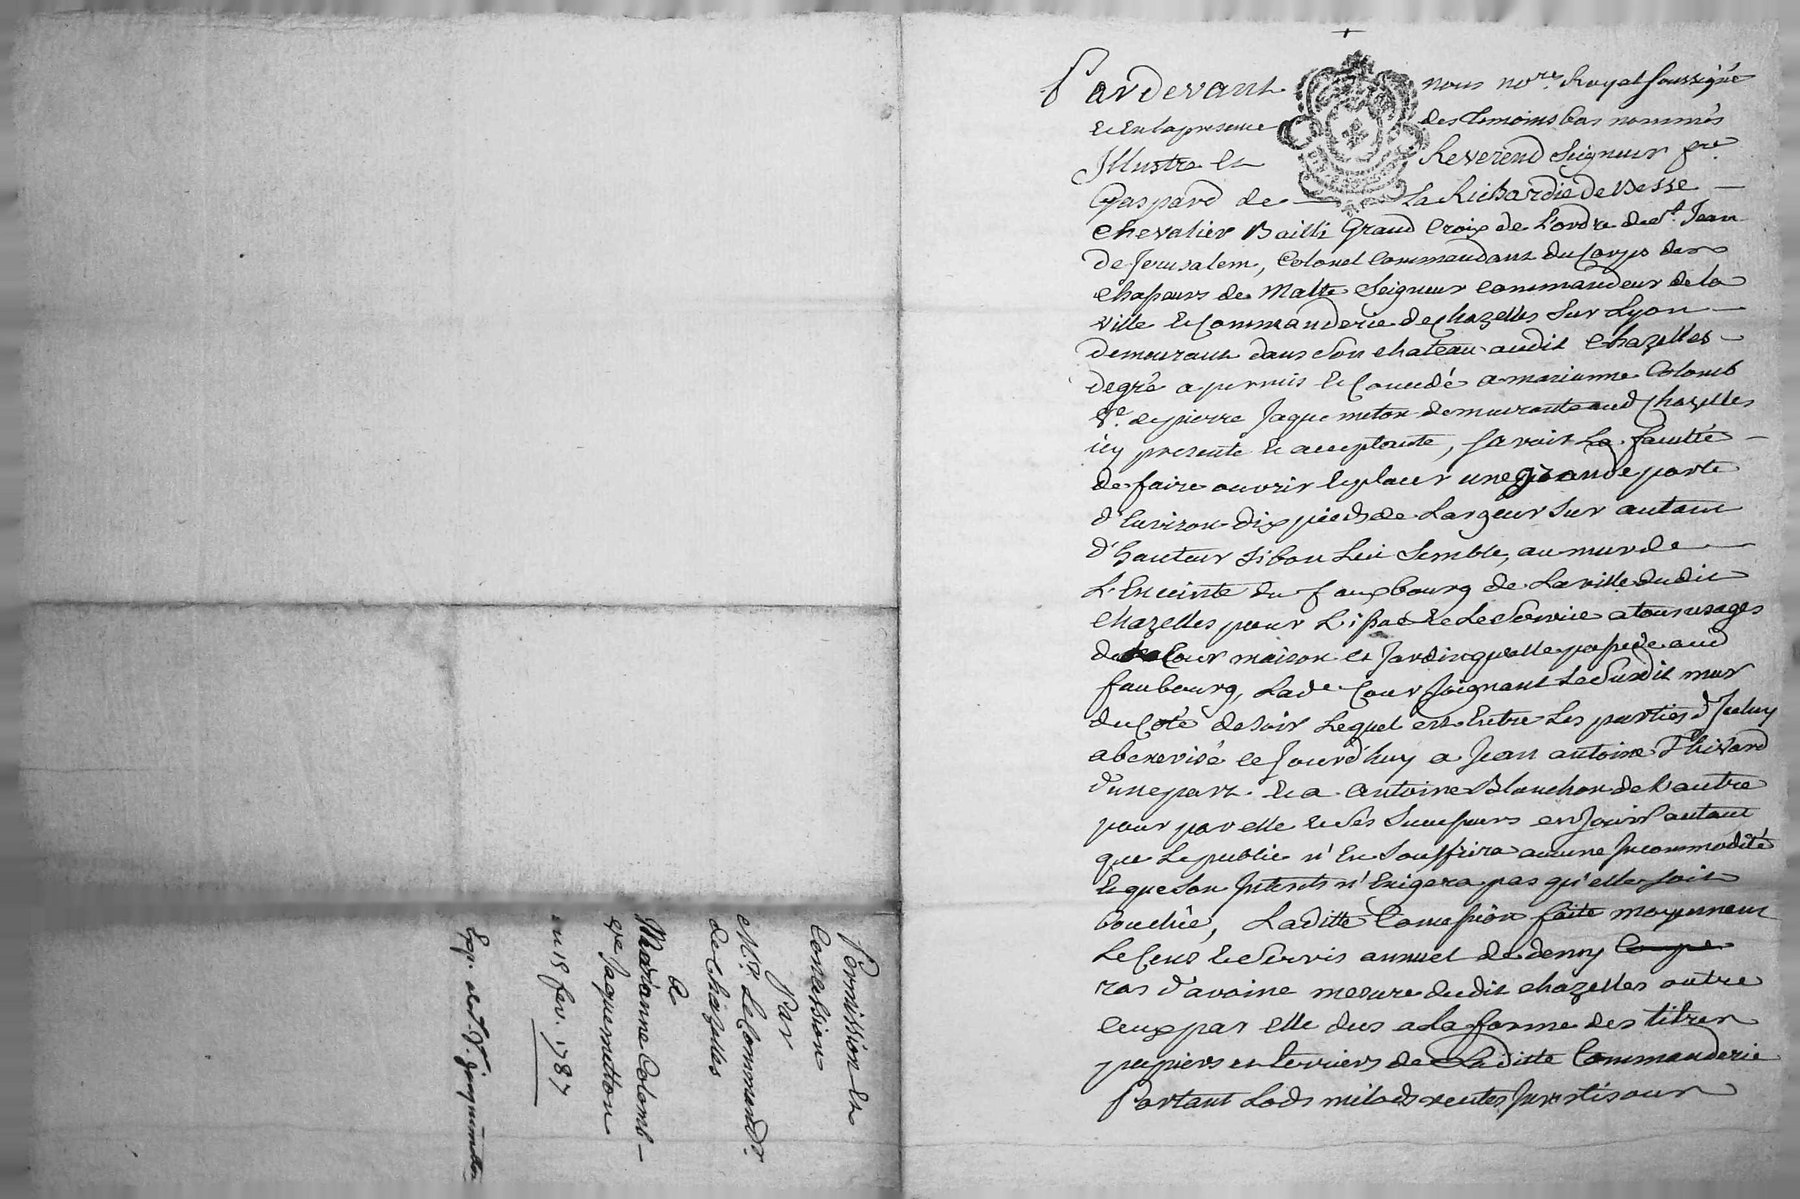 Pardevant nous no.re Royal soussigné
et En la presence des temoins bas nommés
Illustre et Reverend Seigneur fre.
Gaspard de La Richardie de Besse
chevalier Bailli Grand Croix de L'ordre de St. Jean
de Jerusalem, Colonel Commandant du Corps des
chasseurs de Malte Seigneur commandeur de la
ville et Commanderie de Chazelles Sur Lyon
demeurant dans Son chateau audit Chazelles
degré a permis et Concedé a marianne Colomb
ve. de pierre Jaquemeton demeurante aud Chazelles
icy presente et acceptante, Savoir La faculté
de faire ouvrir et placer une grande porte
d'Environ dix pieds de Largeur Sur autant
d'hauteur Si bon Lui Semble, au mur de
L'Enceinte du fauxbourg de La ville dudit
Chazelles pour L'issue et Le Service a tous usages
de la Cour maison et Jardin quelle possede aud
faubourg, Lade Cour Joignant Le Susdit mur
du Coté de Soir Lequel est Entre Les parties d'Iceluy
abenevisé ce Jourd'huy a Jean antoine Thivard
d'une part et a antoine Blanchon de L'autre
pour par elle et Ses Successeurs en Jouir autant
que Le public n'En Souffrira aucune Incommodité
et que Son Interets n'Exigera pas qu'elle Soit
bouchée, Laditte Concession faite moyennant
Le Cens et Servis annuel de demy Coupe
ras d'avoine mesure dudit chazelles outre
Ceux par Elle dus a La forme des titres
papiers et terriers de Laditte Commanderie
Portant Lods milods ventes
Permission et
Concession
Par
Mr. Le Command.r
de Chazelles
a
Marianne Colomb
ve Jaquemetton
du 15 fev. 1787
Exp. ve. Jaquemeton